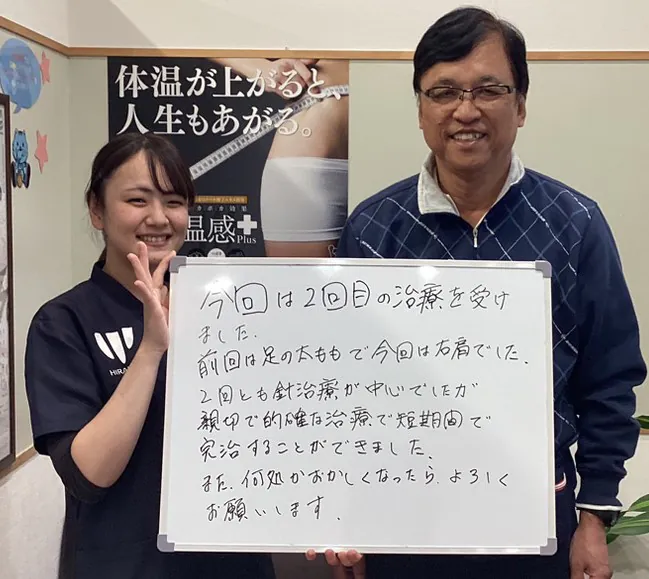 体温が上がると、
人生もあがる。
温感+
Plus
HIRA
今回は2回目の治療を受け
ました.
前回は足の太ももで今回は右肩でした.
2回とも針治療が中心でしたが
親切で的確な治療で短期間で
完治することができました.
また、何処かおかしくなったら、よろしく
お願いします.